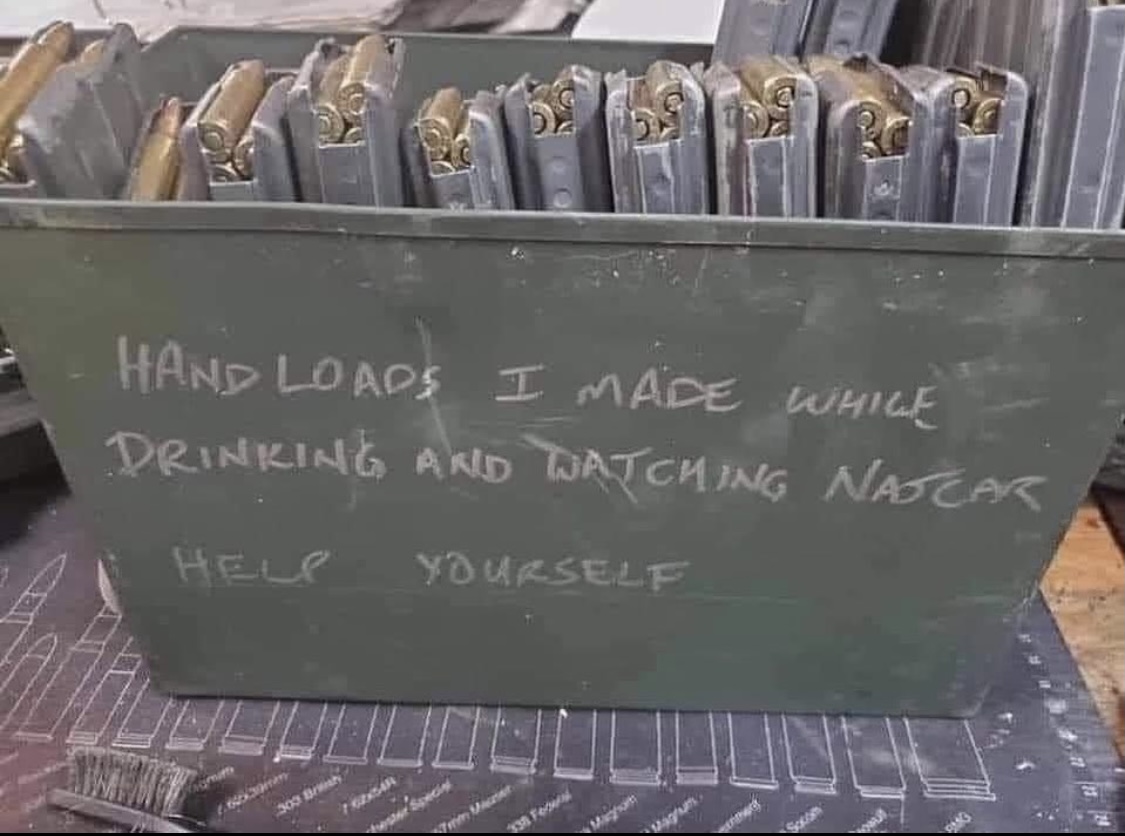 HAND LOADS I MADE WHILE
DRINKING AND WATCHING NASCAR
HELP YOURSELF
.303 British
7.62x54R
7mm Mauser
338 Federal
Magnum
Magnum
Socom